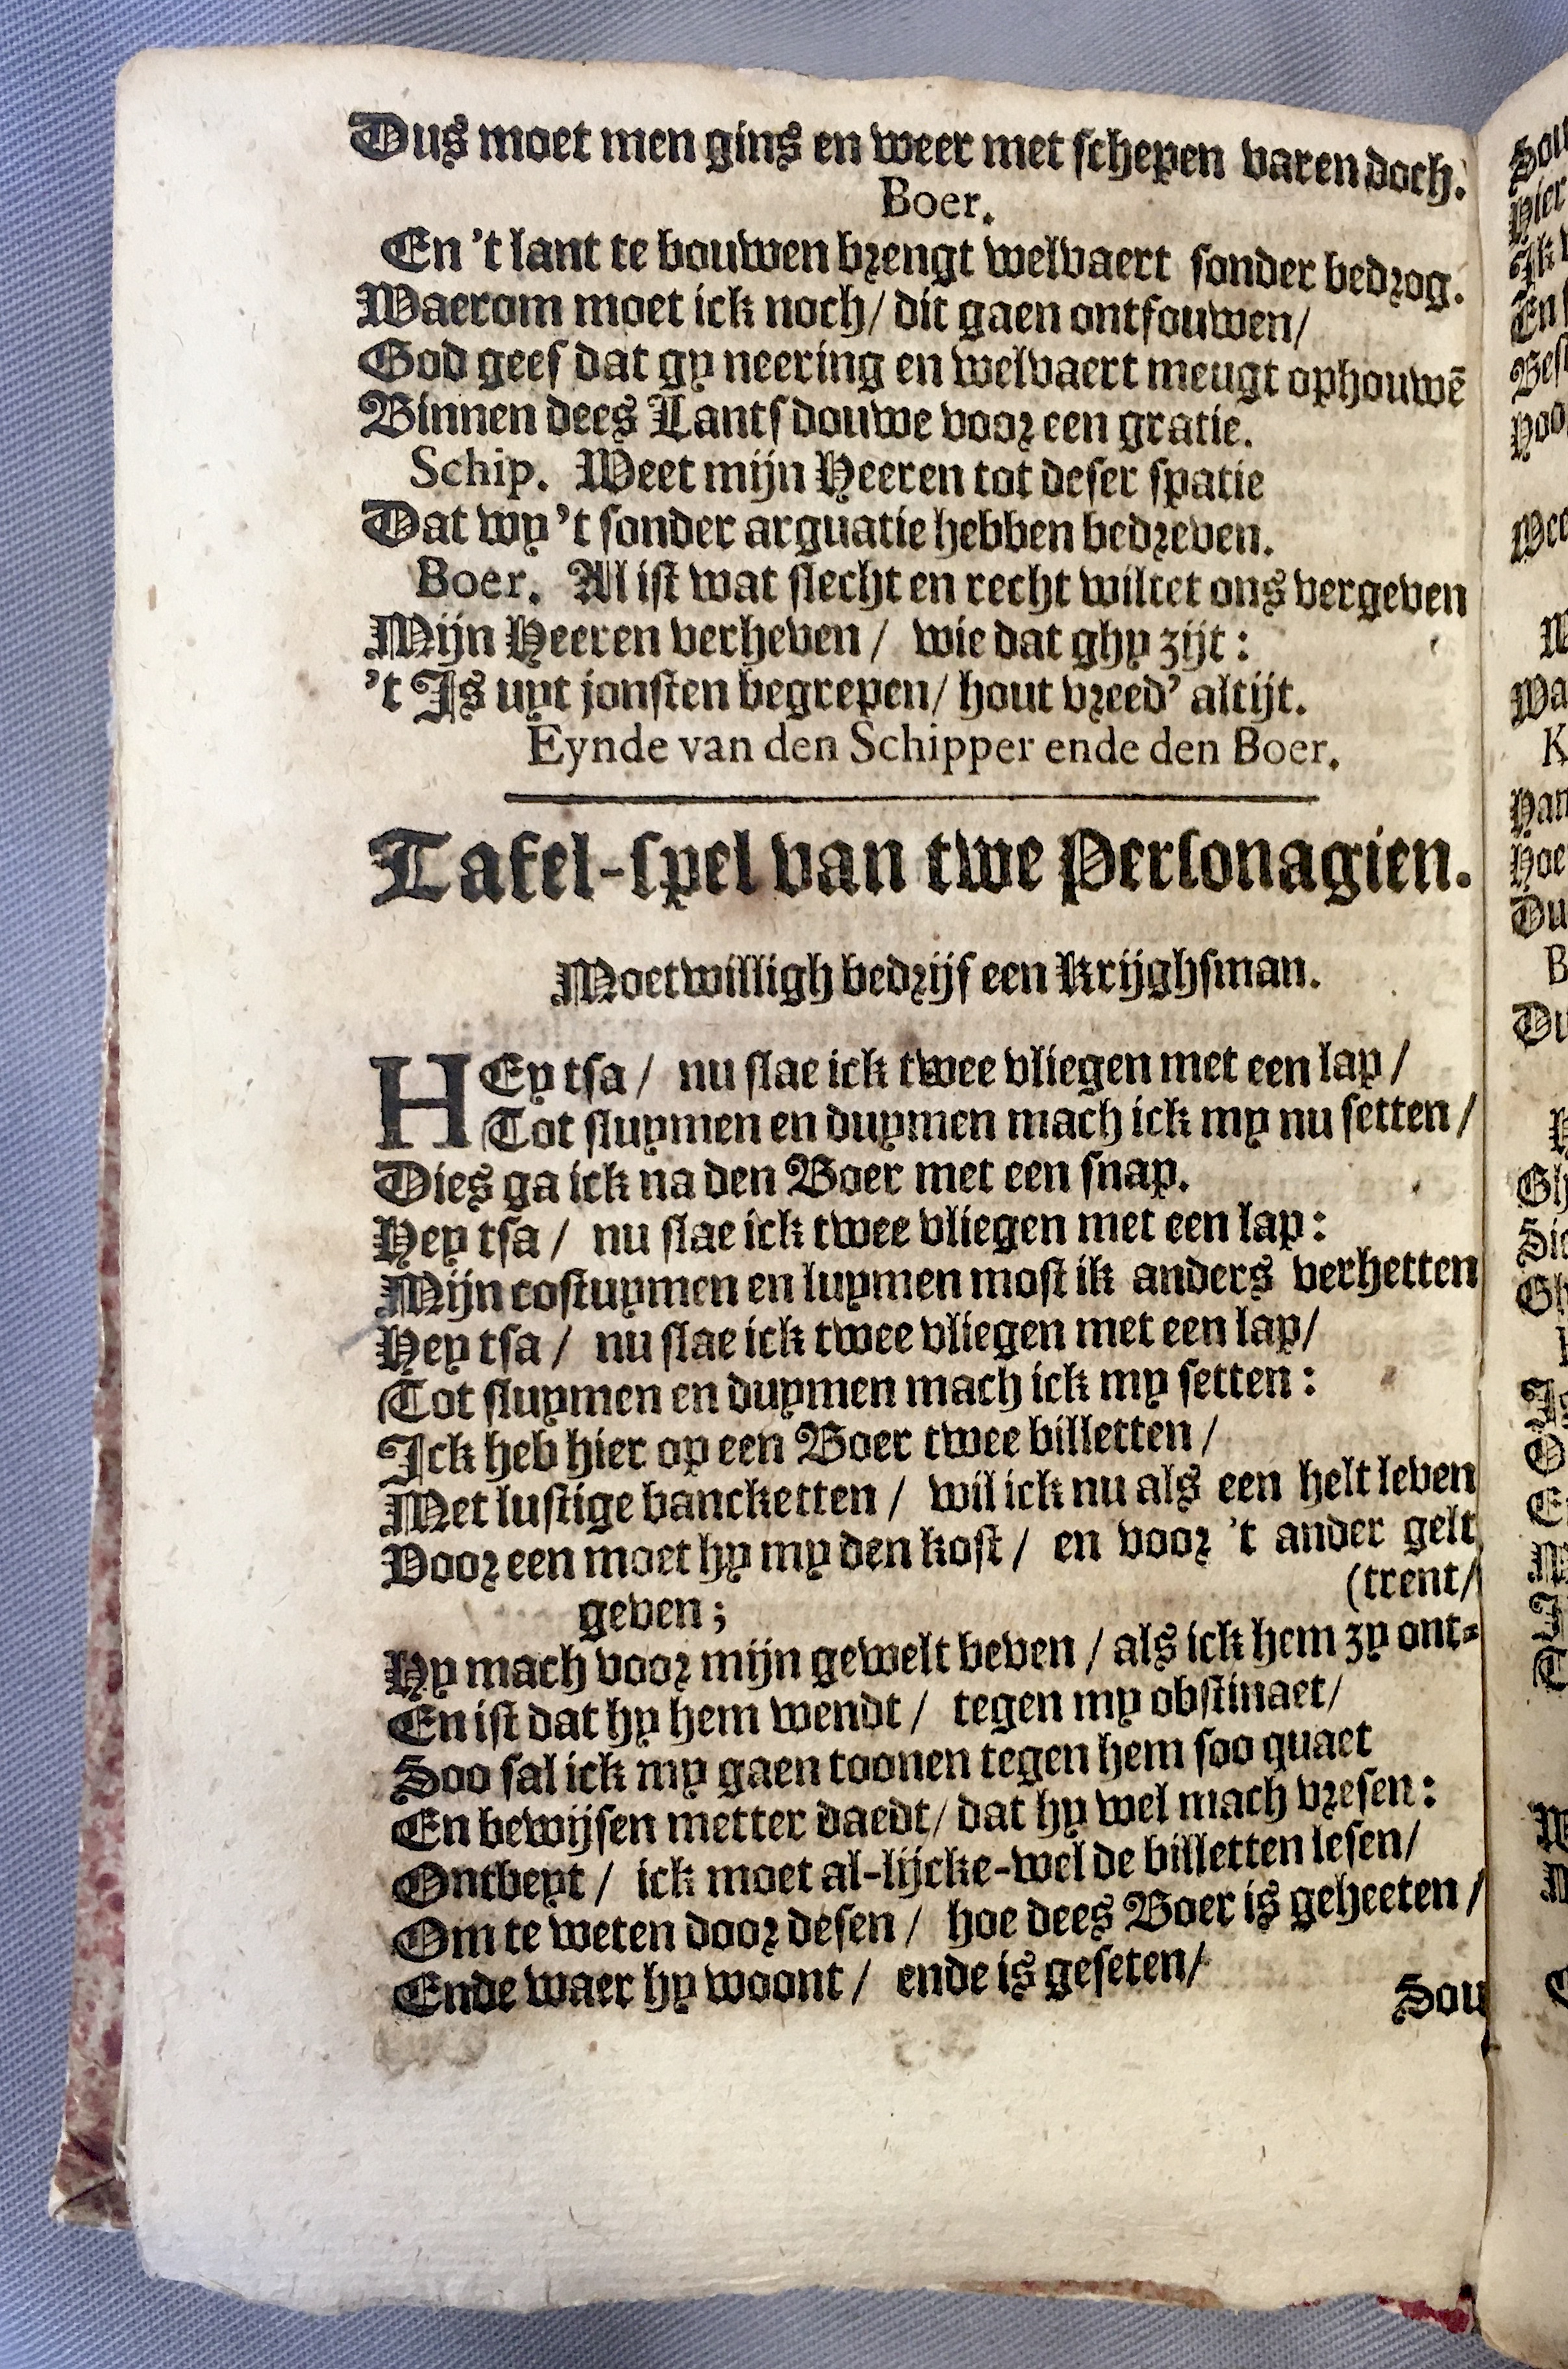 Dus moet men gins en weer met schepen varen doch.
Boer.
En 't lant te bouwen brengt welvaert sonder bedrog.
Waerom moet ick noch/ dit gaen ontfouwen/
God geef dat gy neering en welvaert meugt ophouwē
Binnen dees Lantsdouwe voor een gratie.
Schip. Weet mijn Heeren tot deser spatie
Dat wy 't sonder arguatie hebben bedreven.
Boer. Al ist wat slecht en recht wiltet ons vergeven
Mijn Heeren verheven / wie dat ghy zijt :
't Is uyt jonsten begrepen/ hout vreed' altijt.
Eynde van den Schipper ende den Boer.
Tafel-spel van twe Personagien.
Moetwilligh bedrijf een Krijghsman.
HEy tsa / nu slae ick twee vliegen met een lap /
Tot sluymen en duymen mach ick my nu setten /
Dies ga ick na den Boer met een snap.
Hey tsa / nu slae ick twee vliegen met een lap :
Mijn costuymen en luymen most ik anders verhetten
Hey tsa / nu slae ick twee vliegen met een lap/
Tot sluymen en duymen mach ick my setten :
Ick heb hier op een Boer twee billetten /
Met lustige bancketten / wil ick nu als een helt leven
Voor een moet hy my den kost / en voor 't ander gelt
geven ; (trent/
Hy mach voor mijn gewelt beven / als ick hem zy ont-
En ist dat hy hem wendt / tegen my obstinaet/
Soo sal ick my gaen toonen tegen hem soo quaet
En bewijsen metter daedt/ dat hy wel mach vresen :
Ontbeyt / ick moet al-lijcke-wel de billetten lesen/
Om te weten door desen / hoe dees Boer is geheeten /
Ende waer hy woont / ende is geseten/
Sou